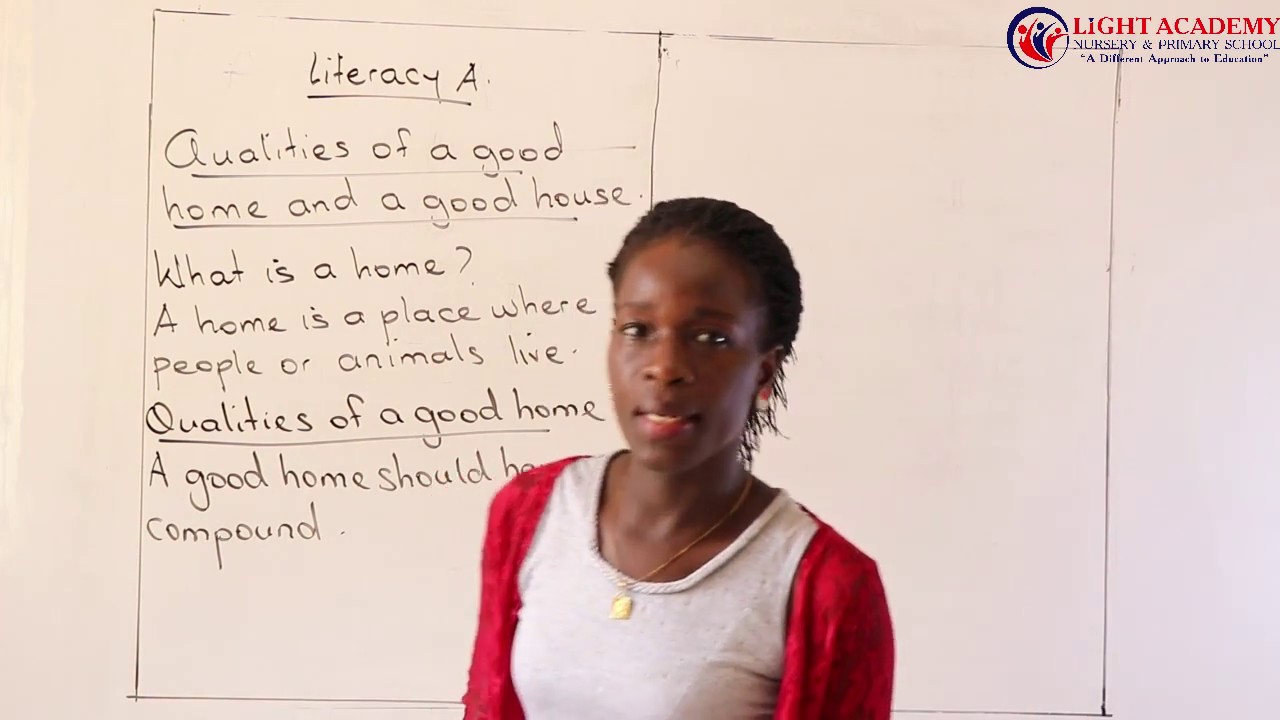 LIGHT ACADEMY
NURSERY & PRIMARY SCHOOL
"A Different Approach to Education"
Literacy A.
Qualities of a good
home and a good house.
What is a home?
A home is a place where
people or animals live.
Qualities of a good home
A good home should
compound.